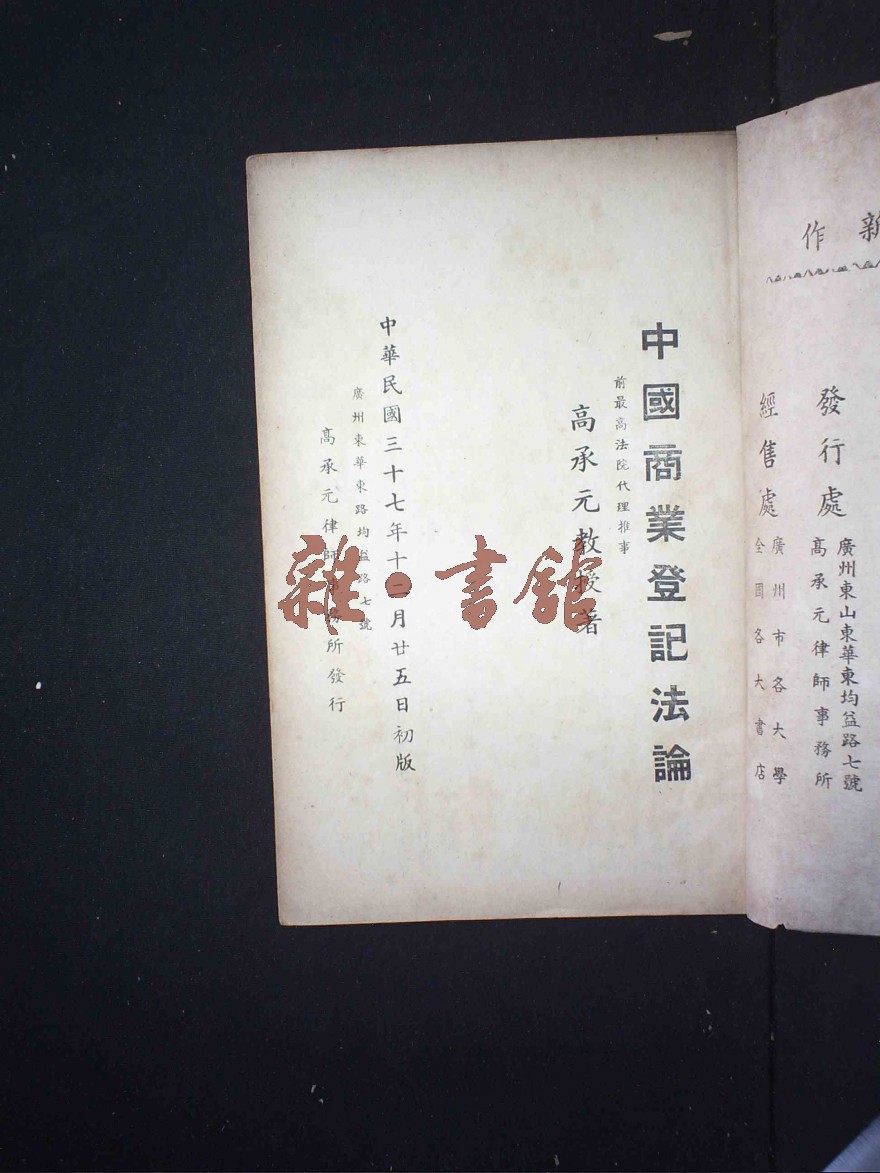 新作
發行處
廣州東山東華東均益路七號
高承元律師事務所
經售處
廣州市各大學
全國各大書店
中國商業登記法論
前最高法院代理推事
高承元教授著
中華民國三十七年十二月廿五日初版
廣州東華東路均益路七號
高承元律師事務所發行
雜·書館